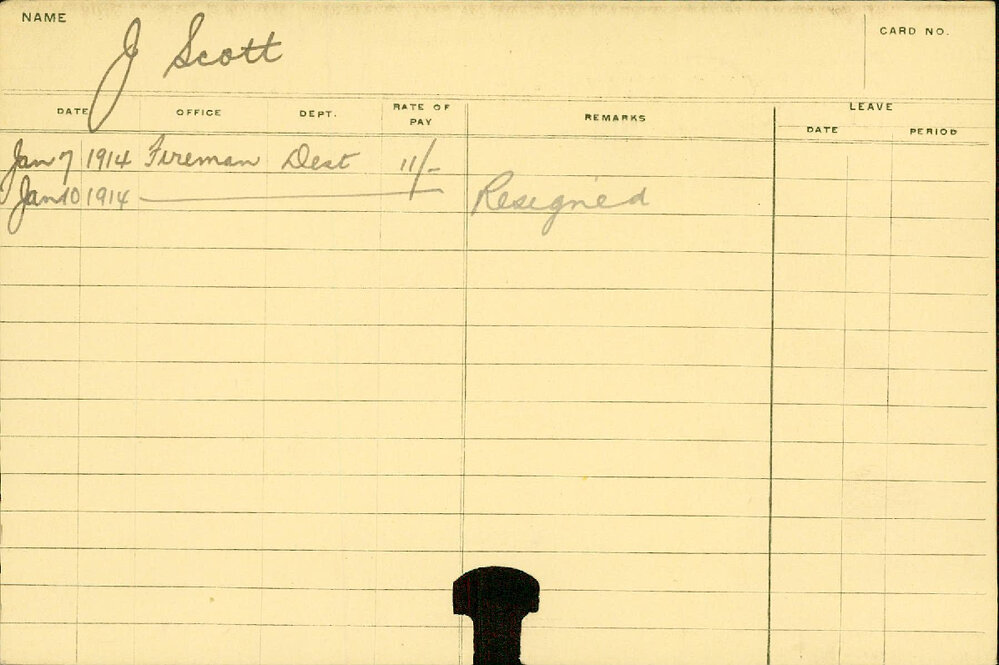 NAME
J Scott
CARD NO.
DATE OFFICE DEPT. RATE OF PAY REMARKS LEAVE
DATE PERIOD
Jan 7 1914 Fireman Dest 11/-
Jan 10 1914 Resigned